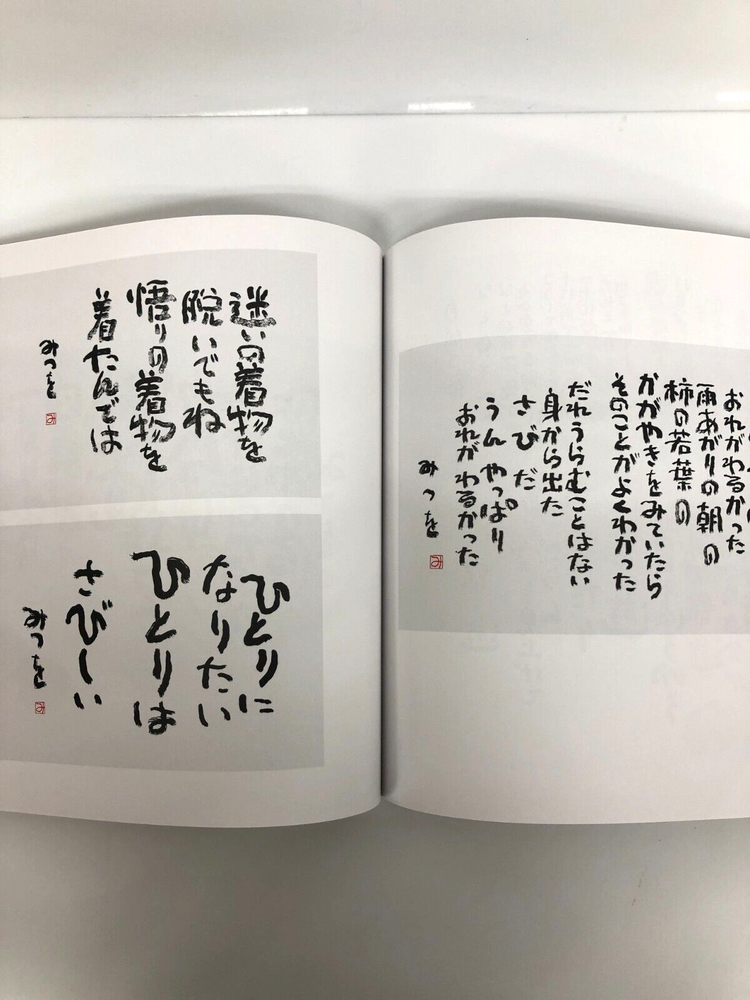 おれがわるかった
雨あがりの朝の
柿の若葉の
かがやきをみていたら
そのことがよくわかった
だれうらむことはない
身から出た
さびだ
うんやっぱり
おれがわるかった
みつを
み
迷いの着物を
脱いでもね
悟りの着物を
着たんでは
みつを
み
ひとりに
なりたい
ひとりは
さびしい
みつを
み